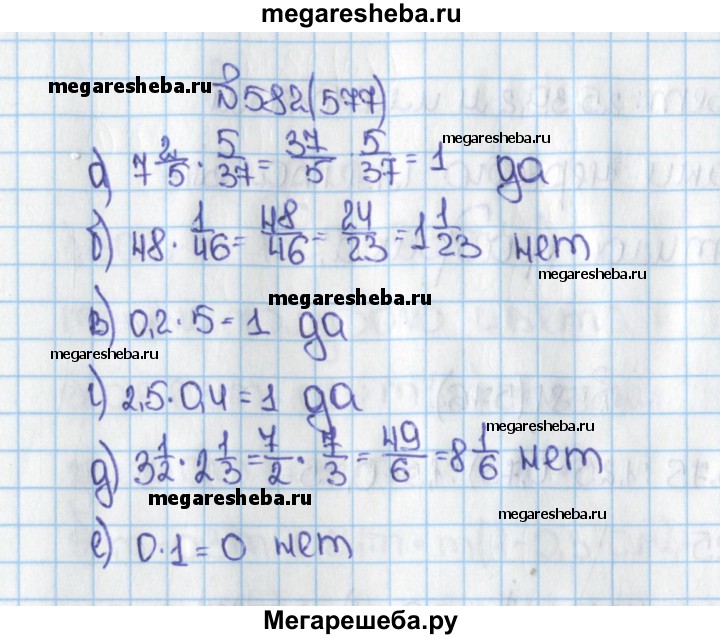 megaresheba.ru
megaresheba.ru
№592(577)
megaresheba.ru
а) 7 2/5 · 5/37 = 37/5 · 5/37 = 1 да
б) 48 · 1/46 = 48/46 = 24/23 = 1 1/23 нет
megaresheba.ru
megaresheba.ru
в) 0,2 · 5 = 1 да
megaresheba.ru
г) 2,5 · 0,4 = 1 да
megaresheba.ru
д) 3 1/2 · 2 1/3 = 7/2 · 7/3 = 49/6 = 8 1/6 нет
megaresheba.ru
megaresheba.ru
е) 0 · 1 = 0 нет
Мегарешеба.ру